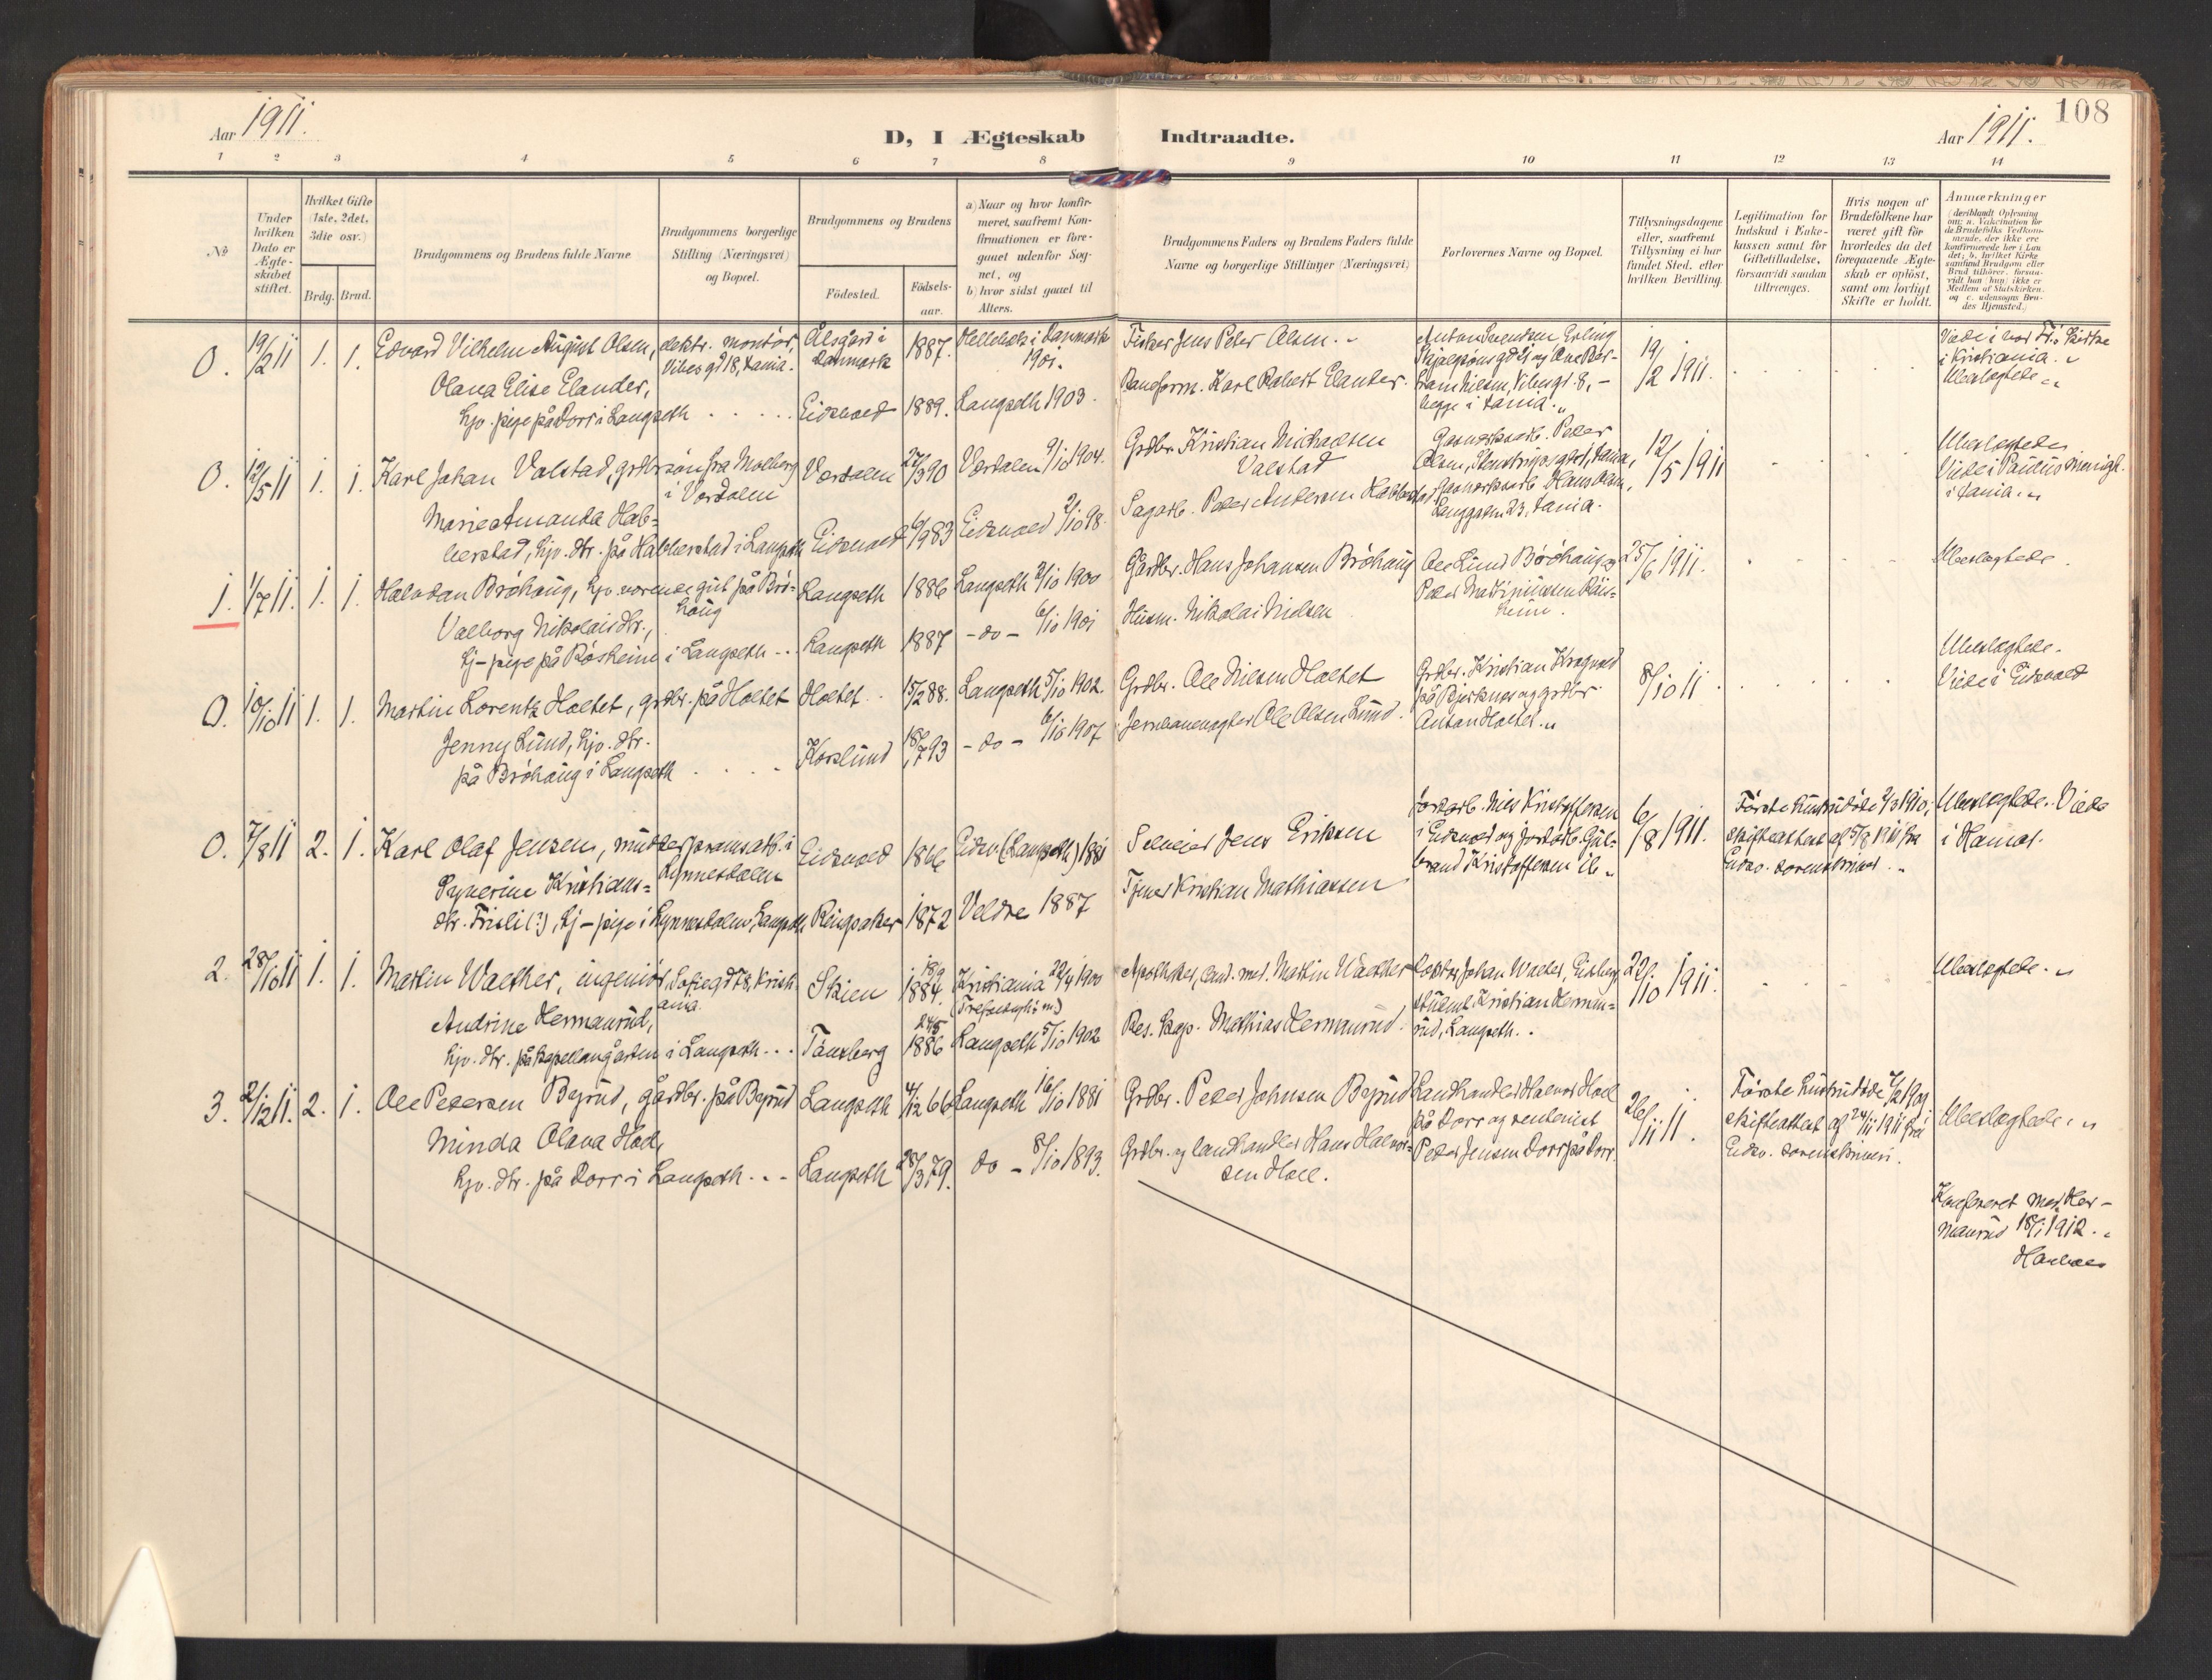 108
Aar 1911.
D, I Ægteskab Indtraadte.
Aar 1911.
1 2 3 4 5 6 7 8 9 10 11 12 13 14
No
Under hvilken Dato er Ægteskabet stiftet.
Hvilket Gifte (1ste, 2det, 3die osv.)
Brdg. Brud.
Brudgommens og Brudens fulde Navne
Brudgommens borgerlige Stilling (Næringsvei) og Bopæl.
Brudgommens og Brudens
Fødested.
Fødselsaar.
a) Naar og hvor konfirmeret, saafremt Konfirmationen er foregaaet udenfor Sognet, og
b) hvor sidst gaaet til Alters.
Brudgommens Faders og Brudens Faders fulde Navne og borgerlige Stillinger (Næringsvei)
Forlovernes Navne og Bopæl.
Tillysningsdagene eller, saafremt Tillysning ei har fundet Sted, efter hvilken Bevilling.
Legitimation for Indskud i Enkekassen samt for Giftetilladelse, forsaavidt saadan tiltrænges.
Hvis nogen af Brudefolkene har været gift før hvorledes da det foregaaende Ægteskab er opløst, samt om lovligt Skifte er holdt.
Anmærkninger
(deriblandt Oplysning om: a. Vakcination for de Brudefolks Vedkommende, der ikke ere konfirmerede her i Landet; b. hvilket Kirkesamfund Brudgom eller Brud tilhører, forsaavidt han (hun) ikke er Medlem af Statskirken, og c. udensogns Brudes Hjemsted.)
0. 19/2 11 1. 1. Edvard Vilhelm August Olsen, elektr. montör, Ålsgård i 1887. Hellebæk i Danmark Fisker Jens Peter Olsen. Anton Svendsen Erling 19/2 1911. Viede i vor Fr. kirke
Vibesgd 18, Xania. Danmark 1901. i Kristiania.
Olava Elise Elander, Eidsvold 1889. Langseth 1903. Karl Robert Elander. Vibesgt. 8, Ubeslegtede
hjv. pige på Dorr i Langseth begge i Xania.
0. 12/5 11 1. 1. Karl Johan Valstad, grdbr.søn fra Molberg Værdalen 27/3 90 Værdalen 9/10 1904. Grdbr. Kristian Michaelsen Gasværksarb. Peder 12/5 1911 Ubeslegtede
i Værdalen Valstad Olsen, Xania, Viede i Paulus menigh.
Marie Amanda Hab- Eidsvold 83 Eidsvold 2/10 98. Sagarb. Peder Andersen Habberstad Gasværksarb. Hans Olsen, i Xania.
berstad, hjv. dtr. på Habberstad i Langseth Langgaten 23, Xania.
1. 1/7 11. 1. 1. Halvdan Bröhaug, hjv. værende gut på Brö- Langseth 1886 Langseth 1900 Gårdbr. Hans Johansen Bröhaug Ole Lund Bröhaug og 25/6 1911. Ubeslegtede.
haug Peder Martiniussen Rås-
Valborg Nikolaisdtr., Langseth 1887 -do- 6/10 1901 Husm. Nikolai Nielsen heim.
tj-pige på Råsheim i Langseth
0. 10/10 11 1. 1. Martin Lorentz Holtet, grdbr. på Holtet Holtet 15/2 88. Langseth 5/10 1902. Grdbr. Ole Nilsen Holtet Grdbr. Kristian Krogvold 8/10 11 Ubeslegtede.
på Bjerknes og grdbr. Viede i Eidsvold
Jenny Lund, hjv. dtr. Korslund 18/7 93 -do- 6/10 1907 Jernbanevogter Ole Olsen Lund. Anton Holtet.
på Bröhaug i Langseth
0. 7/8 11 2. 1. Karl Olaf Jensen, mudderpramsarb. i Eidsvold 1866 Eidsv (Langseth) 1881 Selveier Jens Eriksen Jordarb. Nils Kristoffersen 6/8 1911. Første hustru döde 2/3 1910; Ubeslegtede. Viede
i Eidsvold og jordarb. Gul- skifteattest af 5/8 1911 fra i Hamar.
Signerine Kristians- Ringsaker 1872 Veldre 1887 Tjener Kristian Mathiassen brand Kristoffersen ib. Eidsv. sorenskriveri.
dtr. Frisli(?), tj-pige i Langseth
2. 28/10 11 1. 1. Martin Walther, ingeniör, Sofiegd 78, Kristi- Skien 18/9 1884. Kristiania 22/4 1900 Apotheker, cand. med. Martin Walther Doktor Johan Walther, Eidsberg, 22/10 1911. Ubeslegtede.
ania. (Trefoldigh. m.) student Kristian Herman-
Andrine Hermanrud, Tönsberg 24/5 1886 Langseth 5/10 1902 Res. kap. Mathias Hermanrud. rud, Langseth.
hjv. dtr. på kapellangården i Langseth
3. 2/12 11. 2. 1. Ole Petersen Byrud, gårdbr. på Byrud Langseth 4/12 66 Langseth 16/10 1881 Grdbr. Peder Johnsen Byrud Landhandler Halvor Hoel 26/11 11. Første hustru döde 1909 Ubeslegtede.
på Dorr og rentenist skifteattest af 24/11 1911 fra
Minda Olava Hoel, Langseth 28/3 79. do - 8/10 1893. Grdbr. og landhandler Hans Halvor- Peder Jensen Dorr på Dorr. Eidsv. sorenskriveri.
hjv. dtr. på Dorr i Langseth sen Hoel.
Konfereret med Her-
manrud 18/1 1912.